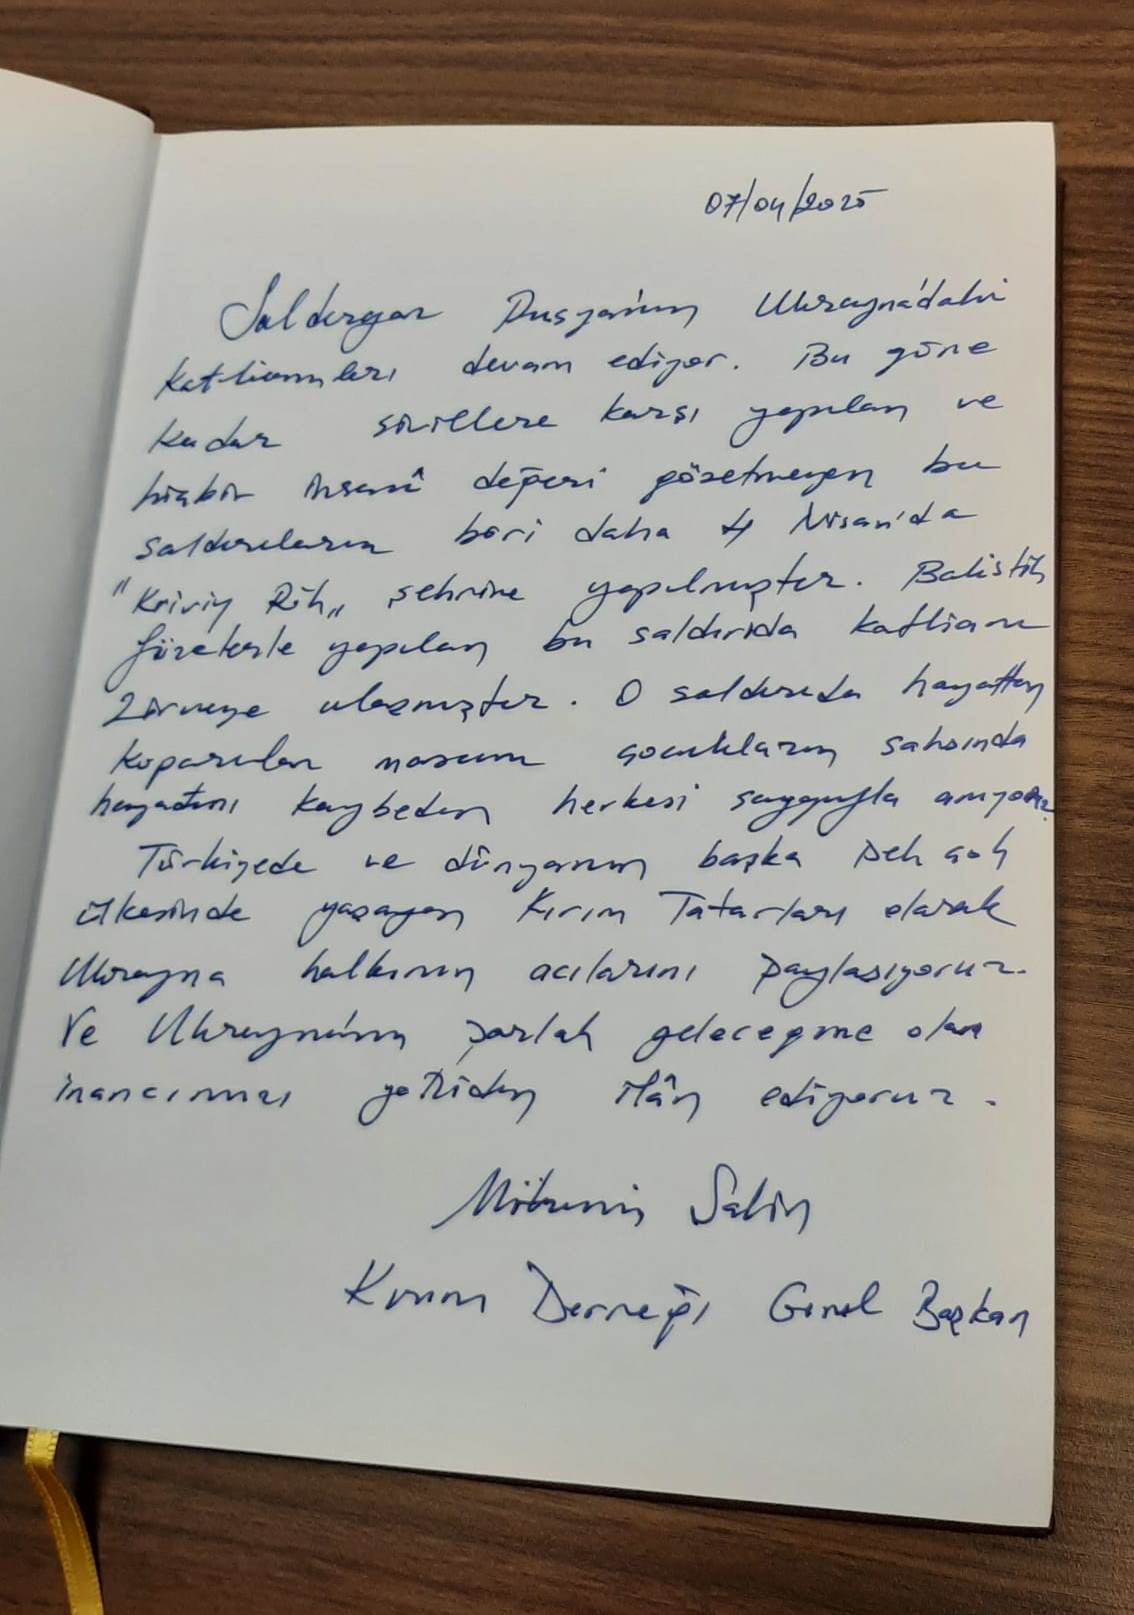 07/04/2025
Saldırgan Rusya'nın Ukrayna'daki
katliamları devam ediyor. Bu güne
kadar sivillere karşı yapılan ve
hiçbir insanî değeri gözetmeyen bu
saldırıların biri daha 4 Nisan'da
"Kriviy Rih" şehrine yapılmıştır. Balistik
füzelerle yapılan bu saldırıda katliam
zirveye ulaşmıştır. O saldırıda hayattan
koparılan masum çocukların şahsında
hayatını kaybeden herkesi saygıyla anıyoruz.
Türkiyede ve dünyanın başka pek çok
ülkesinde yaşayan Kırım Tatarları olarak
Ukrayna halkının acılarını paylaşıyoruz.
Ve Ukrayna'nın parlak geleceğine olan
inancımızı yeniden ilân ediyoruz.
Şahin
Kırım Derneği Genel Başkan